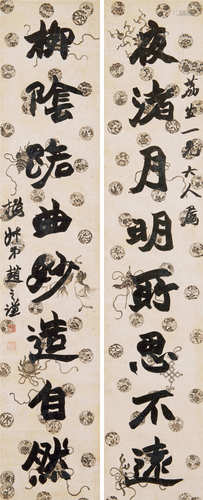 夜渚月明所思不遠
荔生一兄大人屬
柳陰路曲妙造自然
撝叔弟趙之謙